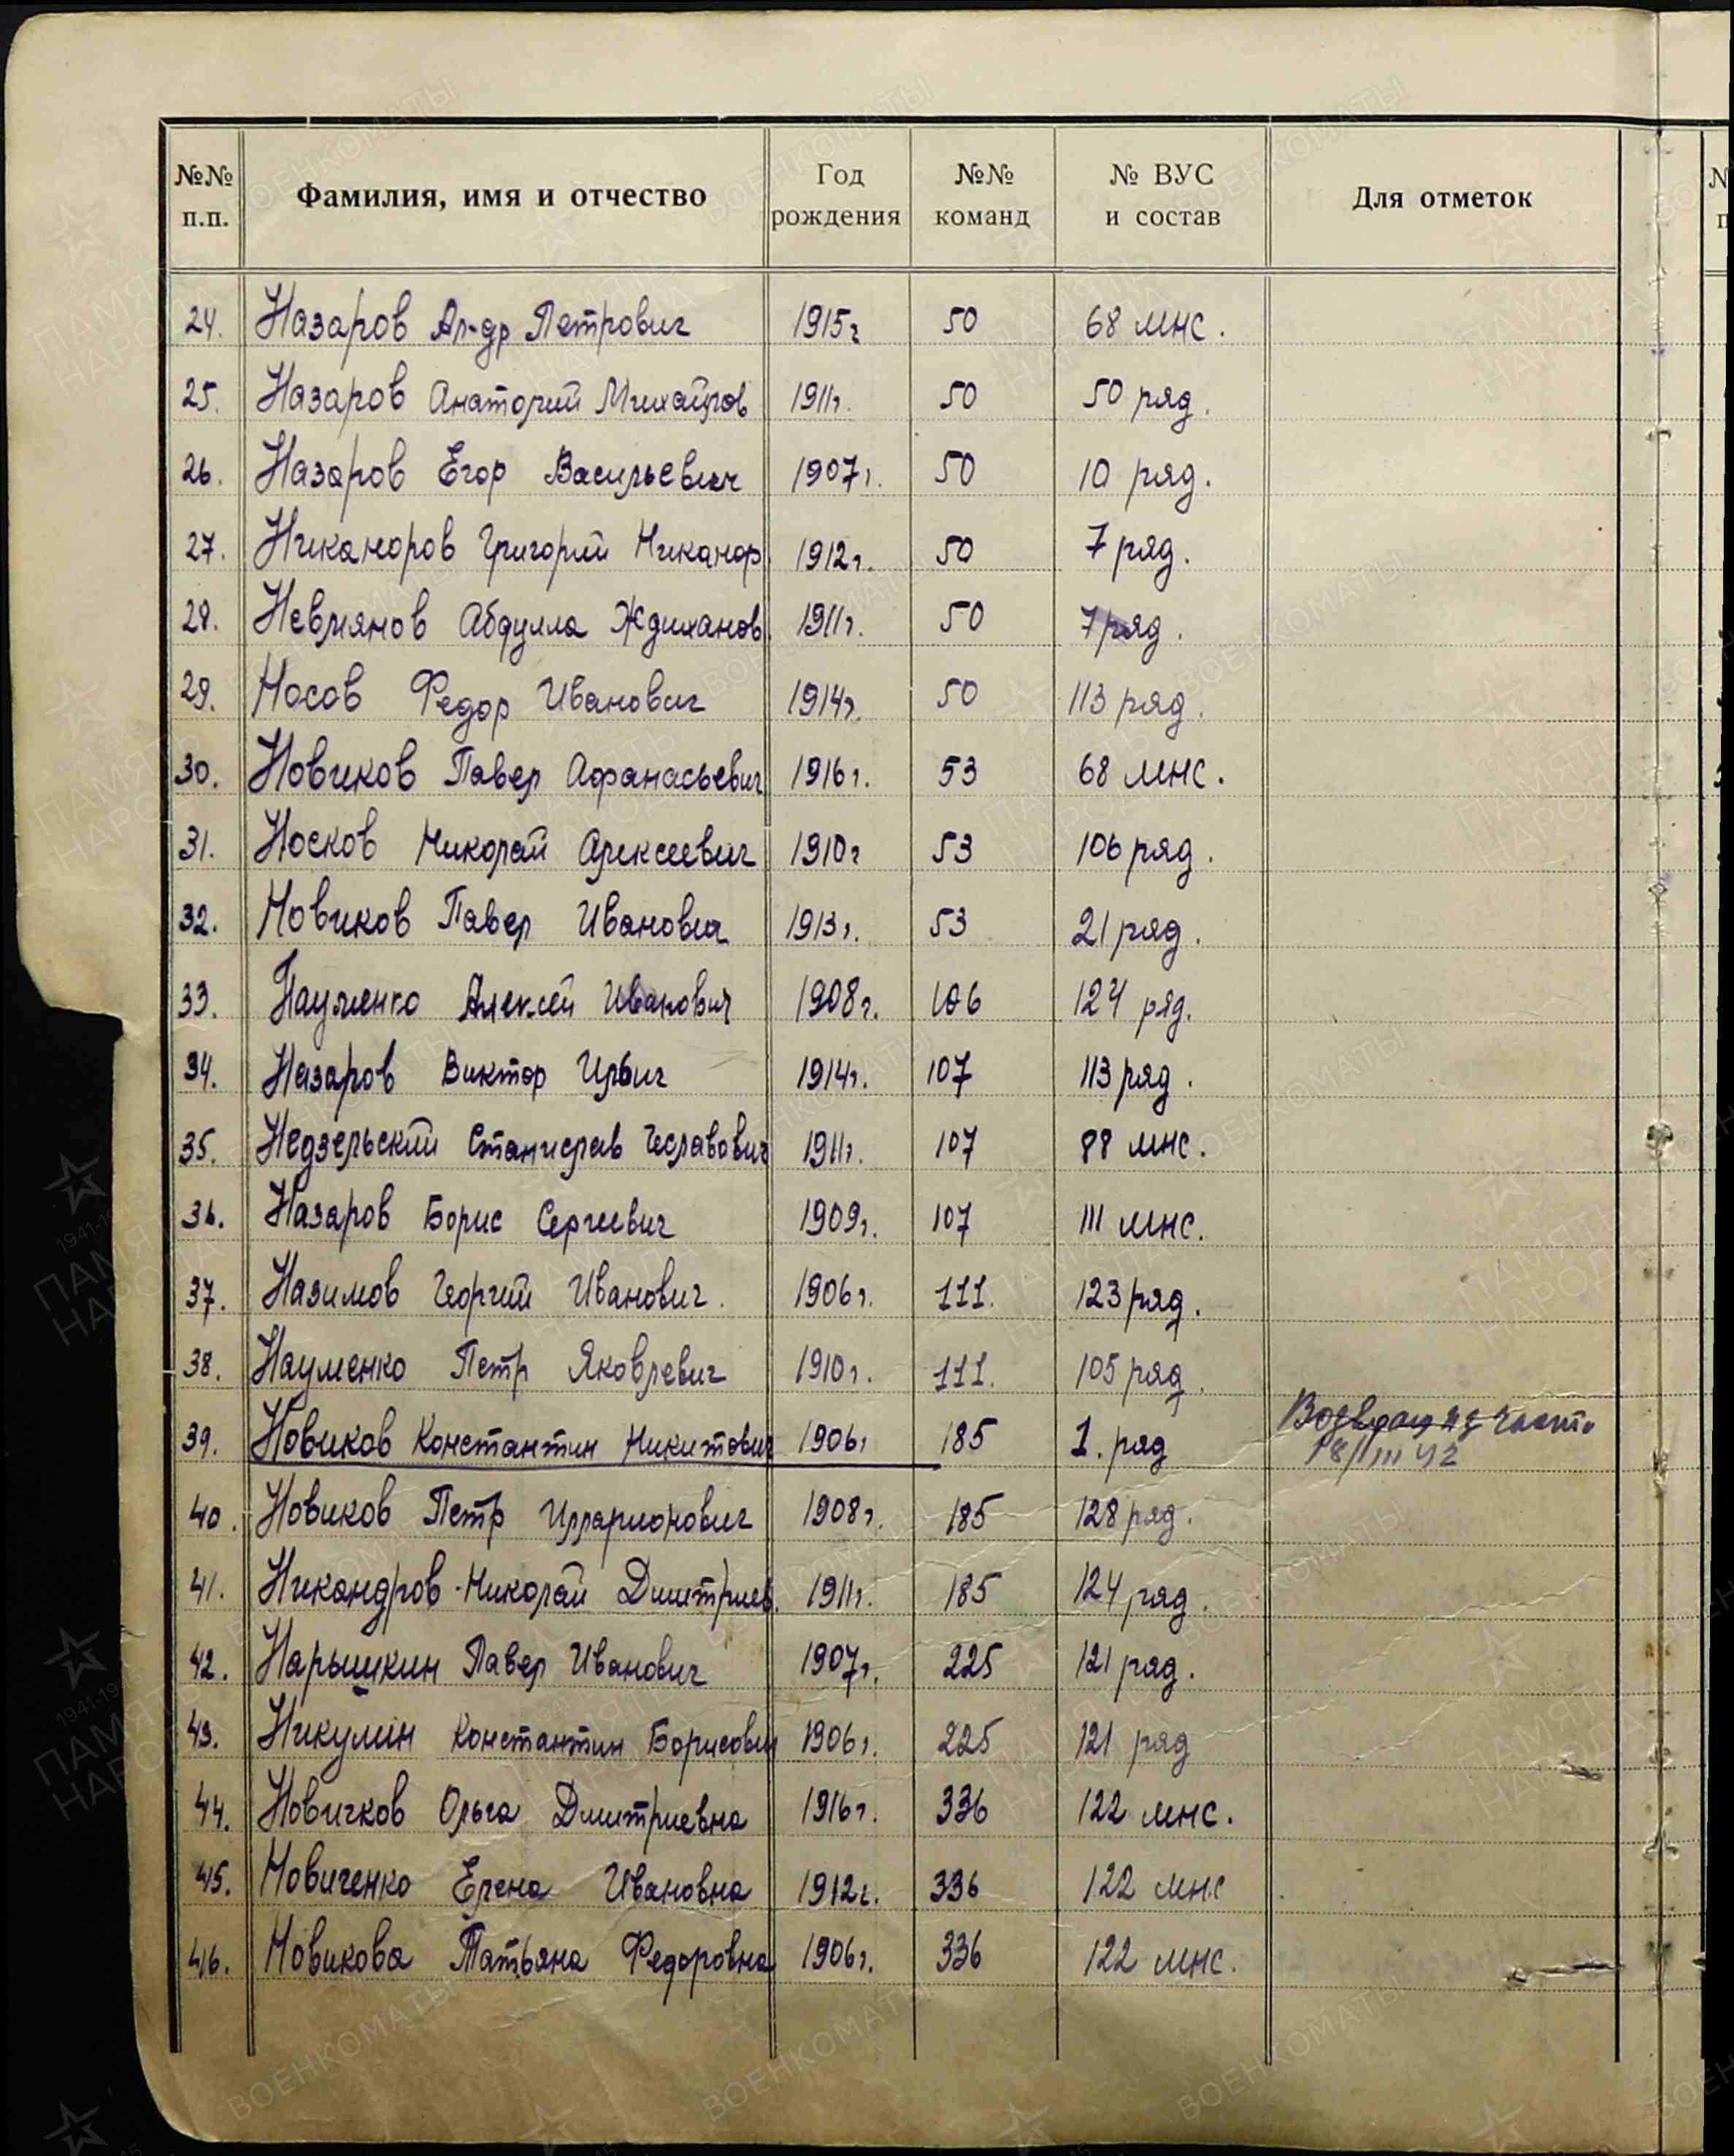 №№ п.п. Фамилия, имя и отчество Год рождения №№ команд № ВУС и состав Для отметок
24. Назаров Ал-др Петрович 1915г 50 68 мнс.
25. Назаров Анатолий Михайлов 1911г. 50 50 ряд.
26. Назаров Егор Васильевич 1907г. 50 10 ряд.
27. Никаноров Григорий Никанор. 1912г. 50 7 ряд.
28. Абдулла 1911г. 50 7 ряд.
29. Носов Федор Иванович 1914г. 50 113 ряд.
30. Новиков Павел Афанасьевич 1916г. 53 68 мнс.
31. Носков Николай Алексеевич 1910г 53 106 ряд.
32. Новиков Павел Иванович 1913г. 53 21 ряд.
33. Науменко Алексей Иванович 1908г. 106 124 ряд.
34. Назаров Виктор Ильич 1914г. 107 113 ряд.
35. Недзельский Станислав Чеславович 1911г. 107 88 мнс.
36. Назаров Борис Сергеевич 1909г. 107 111 мнс.
37. Назимов Георгий Иванович. 1906г. 111. 123 ряд.
38. Науменко Петр Яковлевич 1910г. 111. 105 ряд.
39. Новиков Константин Никитович 1906г 185 1. ряд
18/III 42
40. Новиков Петр Илларионович 1908г. 185 128 ряд.
41. Никандров Николай Дмитриев. 1911г. 185 124 ряд.
42. Нарышкин Павел Иванович 1907г. 225 121 ряд.
43. Никулин Константин Борисович 1906г. 225 121 ряд
44. Новичков Ольга Дмитриевна 1916г. 336 122 мнс.
45. Новиченко Елена Ивановна 1912г. 336 122 мнс
46. Новикова Татьяна Федоровна 1906г. 336 122 мнс.
ПАМЯТЬ НАРОДА
ВОЕНКОМАТЫ